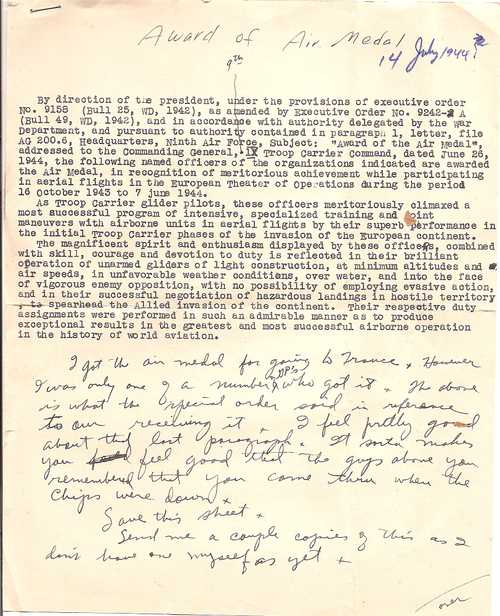 Award of Air Medal
14 July 1944 ?
9th
By direction of the president, under the provisions of executive order
No. 9158 (Bull 25, WD, 1942), as amended by Executive Order No. 9242-A
(Bull 49, WD, 1942), and in accordance with authority delegated by the War
Department, and pursuant to authority contained in paragraph 1, letter, file
AG 200.6, Headquarters, Ninth Air Force, Subject: "Award of the Air Medal",
addressed to the Commanding General, IX Troop Carrier Command, dated June 26,
1944, the following named officers of the organizations indicated are awarded
the Air Medal, in recognition of meritorious achievement while participating
in aerial flights in the European Theater of Operations during the period
16 October 1943 to 7 june 1944.
As Troop Carrier glider pilots, these officers meritoriously climaxed a
most successful program of intensive, specialized training and joint
maneuvers with airborne units in aerial flights by their superb performance in
the initial Troop Carrier phases of the invasion of the European continent.
The magnificent spirit and enthusiasm displayed by these officers, combined
with skill, courage and devotion to duty is reflected in their brilliant
operation of unarmed gliders of light construction, at minimum altitudes and
air speeds, in unfavorable weather conditions, over water, and into the face
of vigorous enemy opposition, with no possibility of employing evasive action,
and in their successful negotiation of hazardous landings in hostile territory
to spearhead the Allied invasion of the continent. Their respective duty
assignments were performed in such an admirable manner as to produce
exceptional results in the greatest and most successful airborne operation
in the history of world aviation.
I got the air medal for going to France. However
I was only one of a number GP's who got it. The above
is what the special order said in reference
to our receiving it. I feel pretty good
about that last paragraph. It sorta makes
you feel good that the guys above you
remembered that you came thru when the
chips were down.
Save this sheet.
Send me a couple copies of this as I
don't have one myself as yet.
over